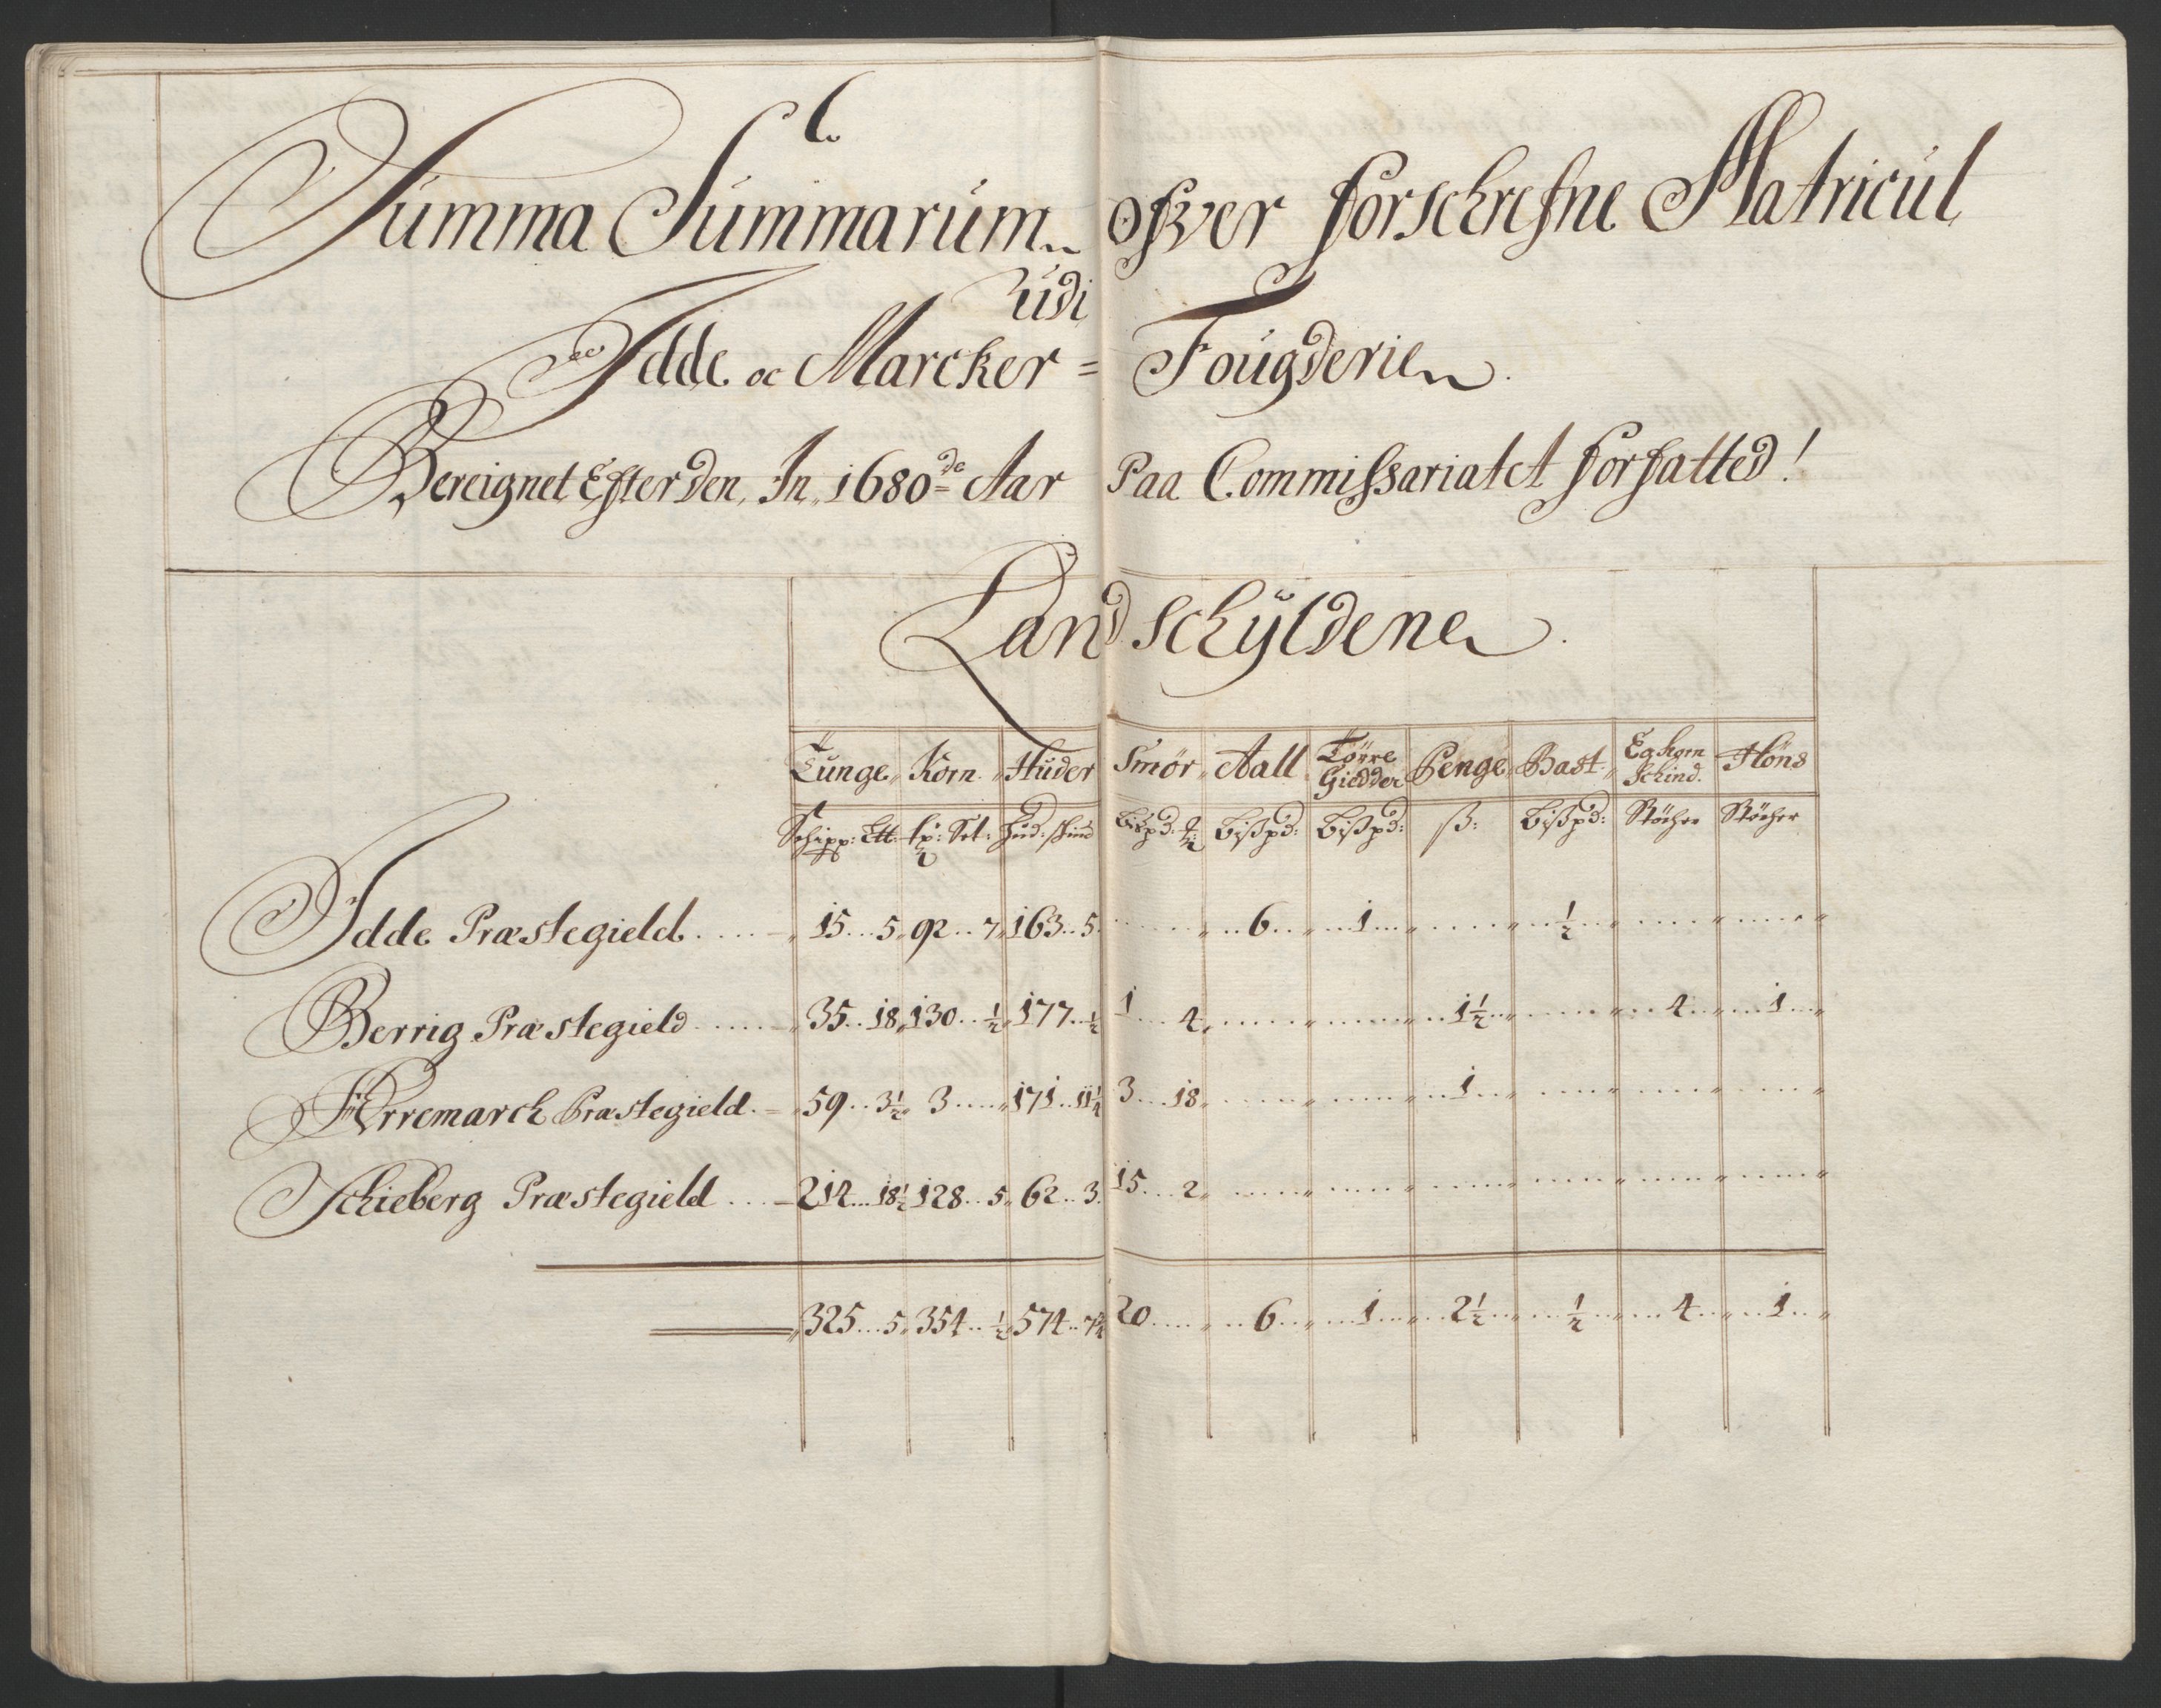 Summa Summarum ofwer forschrefne Matricul
Udi
Idde oc Marcker= Fougderie
Bereignet Efter den In 1680de Aar Paa Commissariatet forfatted!
Landschyldene
Tunge Korn Huder Smör Aall Törre Giedder Penge Bast Eghorn Schind. Höns
Schipp: Ltt: tr: Set: Hud: skind Bißpd: Bißpd: Bißpd: ß: Bißpd: Stöcher Stöcher
Idde Præstegield 15 5 92 7 163 5 6 1 ½
Berrig Præstegield 35 18 130 ½ 177 ½ 1 4 1½ 4 1
Arremarch Præstegield 59 3½ 3 171 11¼ 3 18 1
Schieberg Præstegield 214 18½ 128 5 62 3 15 2
325 5 354 ½ 574 7¾ 20 6 1 2½ ½ 4 1